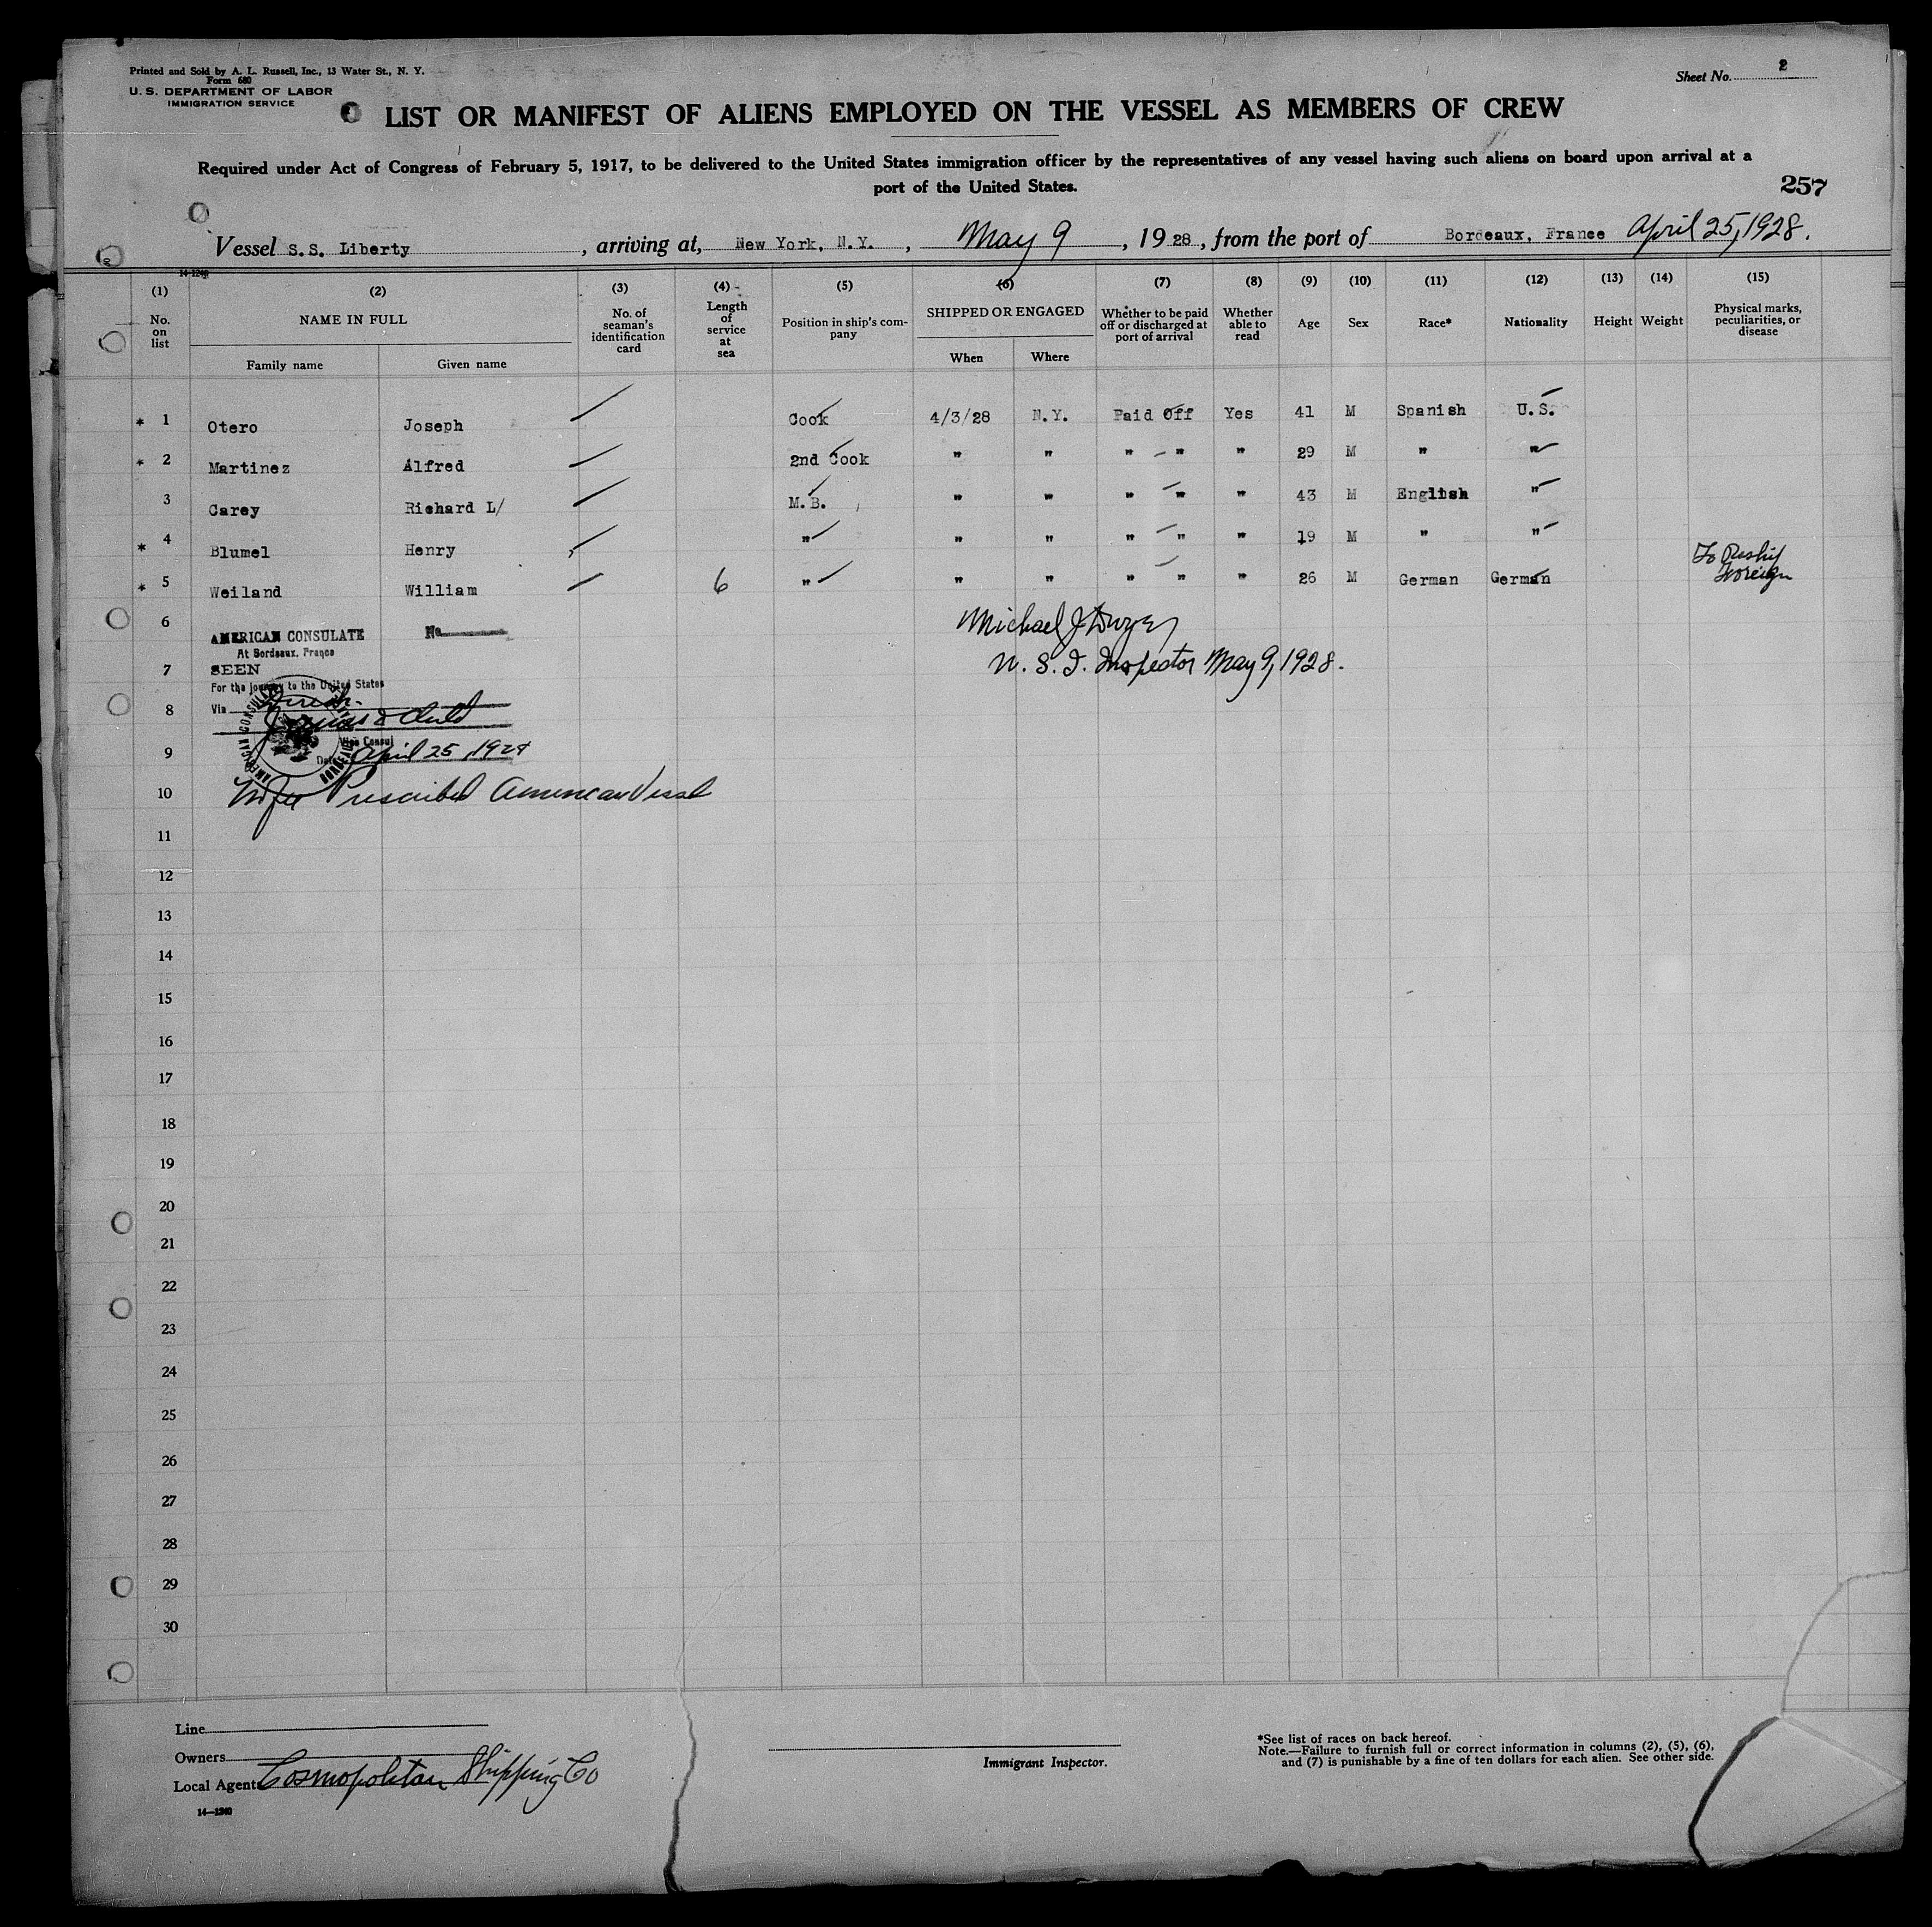 Printed and Sold by A. L. Russell, Inc., 13 Water St., N. Y.
Form 680
U. S. DEPARTMENT OF LABOR
IMMIGRATION SERVICE
Sheet No. 2
LIST OR MANIFEST OF ALIENS EMPLOYED ON THE VESSEL AS MEMBERS OF CREW
Required under Act of Congress of February 5, 1917, to be delivered to the United States immigration officer by the representatives of any vessel having such aliens on board upon arrival at a
port of the United States.
257
Vessel S.S. Liberty, arriving at, New York, N.Y., May 9, 1928, from the port of Bordeaux, France April 25, 1928.
14-1240
(1) (2) (3) (4) (5) (6) (7) (8) (9) (10) (11) (12) (13) (14) (15)
No. on list NAME IN FULL No. of seaman's identification card Length of service at sea Position in ship's company SHIPPED OR ENGAGED Whether to be paid off or discharged at port of arrival Whether able to read Age Sex Race* Nationality Height Weight Physical marks, peculiarities, or disease
Family name Given name When Where
* 1 Otero Joseph Cook 4/3/28 N.Y. Paid Off Yes 41 M Spanish U.S.
* 2 Martinez Alfred 2nd Cook " " " " " 29 M " "
3 Carey Richard L/ M.B. " " " " " 43 M English "
* 4 Blumel Henry " " " " " " 19 M " "
* 5 Weiland William 6 " " " " " " 26 M German German To Reship Foreign
6
AMERICAN CONSULATE No
At Bordeaux, France
Michael J Dwyer
7
SEEN
U. S. I. Inspector May 9, 1928.
For the journey to the United States
8
Via Direct
Vice Consul
9
Date April 25, 1928
10
No fee Prescribed American Vessel
11
12
13
14
15
16
17
18
19
20
21
22
23
24
25
26
27
28
29
30
Line
Owners
Local Agents Cosmopolitan Shipping Co
14—1240
Immigrant Inspector.
*See list of races on back hereof.
Note.—Failure to furnish full or correct information in columns (2), (5), (6),
and (7) is punishable by a fine of ten dollars for each alien. See other side.